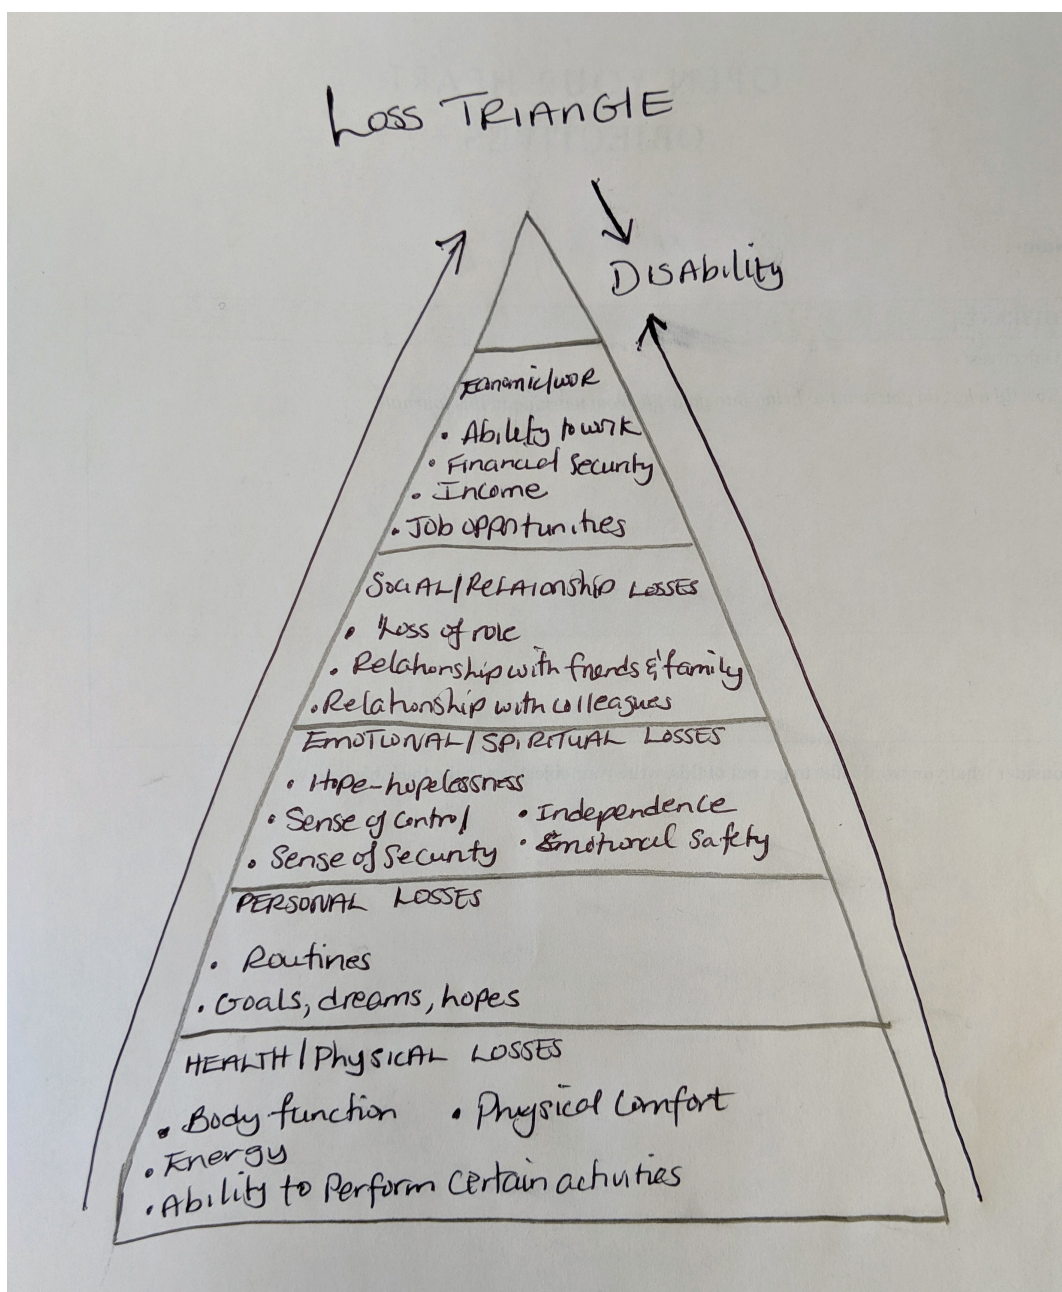 Loss TRIANGLE
DISAbility
Economic/wor
• Ability to work
• Financial Security
• Income
• Job opportunities
SOCIAL/RELATIONShip LOSSES
• Loss of role
• Relationship with friends & family
• Relationship with colleagues
EMOTIONAL/SPIRITUAL LOSSES
• Hope-hopelessness
• Sense of control • Independence
• Sense of Security • Emotional Safety
PERSONAL LOSSES
• Routines
• Goals, dreams, hopes
HEALTH/PhysICAL LOSSES
• Body function • Physical Comfort
• Energy
• Ability to Perform Certain activities